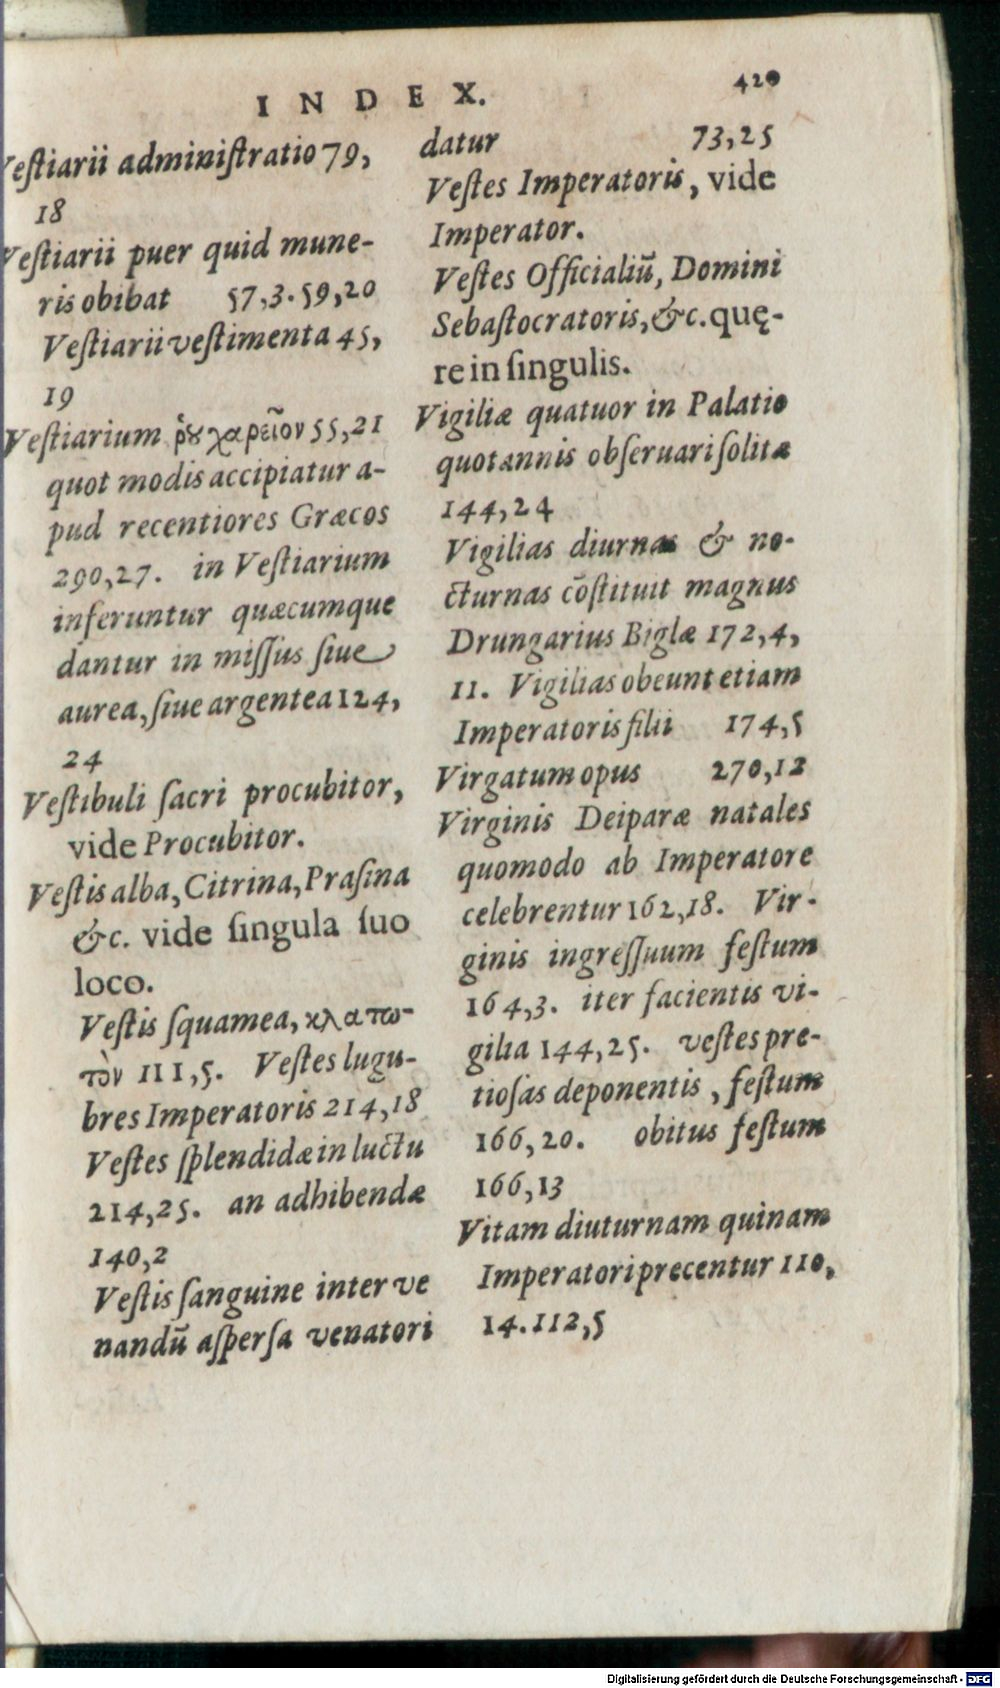 INDEX. 420
Veſtiarii adminiſtratio 79,
18
Veſtiarii puer quid mune-
ris obibat 57,3. 59,20
Veſtiarii veſtimenta 45,
19
Veſtiarium ῥȣχαρεῖον 55,21
quot modis accipiatur a-
pud recentiores Græcos
290,27. in Veſtiarium
inferuntur quæcumque
dantur in miſſus ſiue
aurea, ſiue argentea 124,
24
Veſtibuli ſacri procubitor,
vide Procubitor.
Veſtis alba, Citrina, Praſina
&c. vide ſingula ſuo
loco.
Veſtis ſquamea, κλαπω-
τὸν 111,5. Veſtes lugu-
bres Imperatoris 214,18
Veſtes ſplendidæ in luctu
214,25. an adhibendæ
140,2
Veſtis ſanguine inter ve
nandū aſperſa venatori
datur 73,25
Veſtes Imperatoris, vide
Imperator.
Veſtes Officialiū, Domini
Sebaſtocratoris, &c. quę-
re in ſingulis.
Vigiliæ quatuor in Palatio
quotannis obſeruari ſolitæ
144,24
Vigilias diurnas & no-
cturnas cōſtituit magnus
Drungarius Biglæ 172,4,
11. Vigilias obeunt etiam
Imperatoris filii 174,5
Virgatum opus 270,12
Virginis Deiparæ natales
quomodo ab Imperatore
celebrentur 162,18. Vir-
ginis ingreſſuum feſtum
164,3. iter facientis vi-
gilia 144,25. veſtes pre-
tioſas deponentis, feſtum
166,20. obitus feſtum
166,13
Vitam diuturnam quinam
Imperatori precentur 110,
14. 112,5
Digitalisierung gefördert durch die Deutsche Forschungsgemeinschaft - DFG